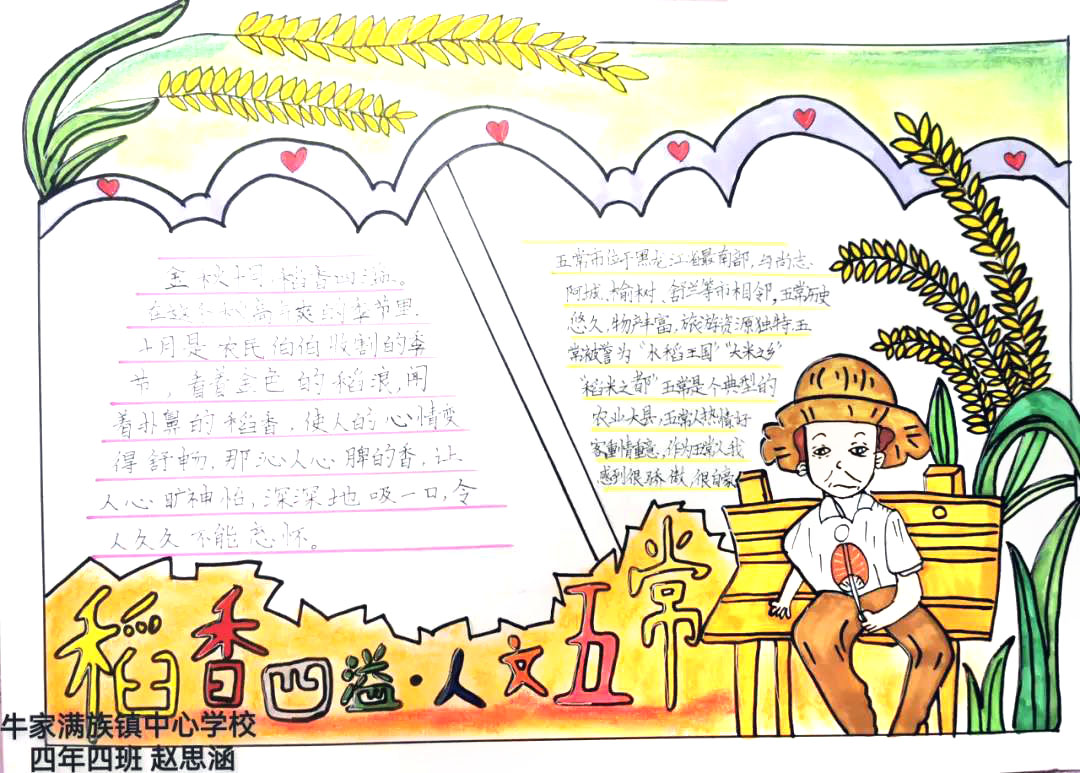 金秋十月,稻香四溢。
在这个秋高气爽的季节里.
十月是农民伯伯收割的季
节,看着金色的稻浪,闻
着扑鼻的稻香.使人的心情变
得舒畅.那沁人心脾的香,让
人心旷神怡,深深地吸一口,令
人久久不能忘怀。
五常市位于黑龙江省最南部,与尚志.
阿城、榆树、舒兰等市相邻,五常历史
悠久,物产丰富,旅游资源独特.五
常被誉为“水稻王国”“大米之乡”
“稻米之都”五常是个典型的
农业大县,五常人热情好
客重情重意.作为五常人我
感到很骄傲,很自豪
稻香四溢·人文五常
牛家满族镇中心学校
四年四班 赵思涵